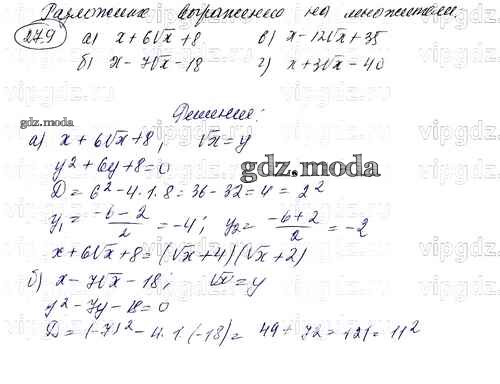 Разложите выражение на множители.
27.9 а) x + 6√x + 8 в) x - 12√x + 35
б) x - 7√x - 18 г) x + 3√x - 40
Решение:
gdz.moda
а) x + 6√x + 8; √x = y
y² + 6y + 8 = 0
gdz.moda
D = 6² - 4·1·8 = 36 - 32 = 4 = 2²
y₁ = (-6 - 2)/2 = -4; y₂ = (-6 + 2)/2 = -2
x + 6√x + 8 = (√x + 4)(√x + 2)
б) x - 7√x - 18; √x = y
y² - 7y - 18 = 0
D = (-7)² - 4·1·(-18) = 49 + 72 = 121 = 11²